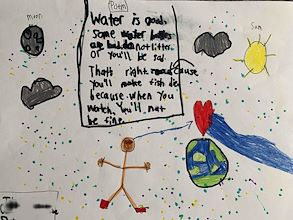 Poem
moon
Sun
Water is good
some water bottles
are bad do not litter
or you'll be sad.
That's right cause
you'll make fish die
because when you
watch, you'll not
be fine.